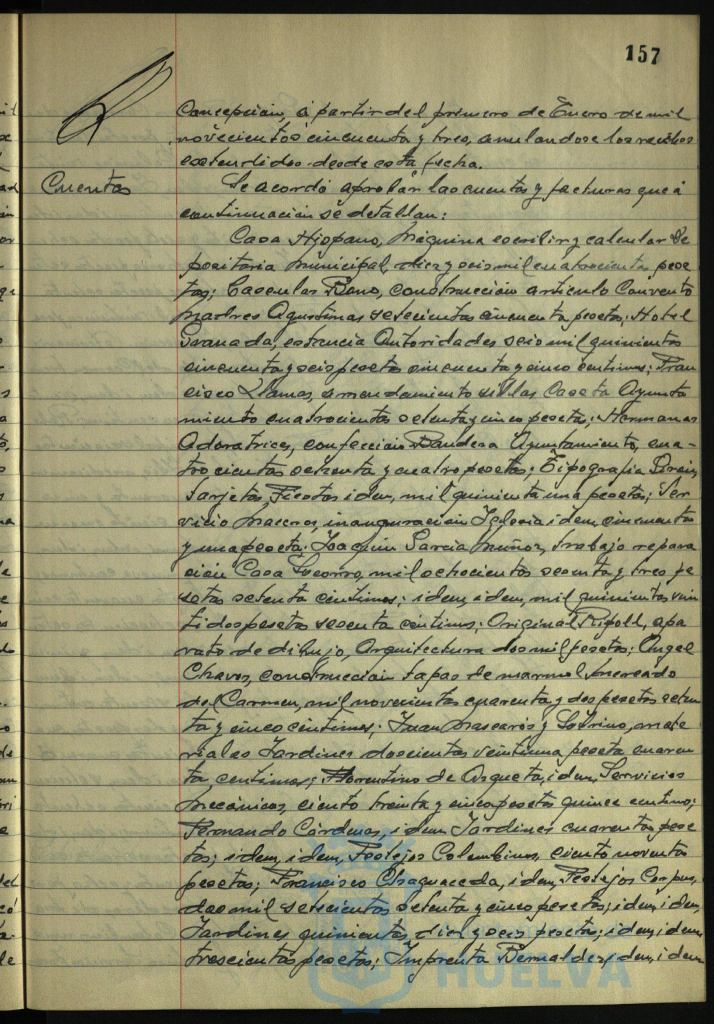 157
Concepcion, á partir del primero de Enero de mil
novecientos cincuenta y tres, anulandose los recibos
extendidos desde esta fecha.
Cuentas
Se acordó aprobar las cuentas y facturas que á
continuación se detallan:
Casa Hispano, máquina escribir y calcular De
positaria Municipal, diez y seis mil cuatrocienta pese
tas; Carculas Bono, construcción articulo Convento
Madres Agustinas setecientas cincuenta pesetas; Hotel
Granada, estancia Autoridades seis mil quinientas
cincuenta y seis pesetas cincuenta y cinco centimos; Fran
cisco Llamas, arrendamiento sillas Caseta Ayunta
miento cuatrocientas setenta y cinco pesetas; Hermanas
Adoratrices, confección Bandera Ayuntamiento, cua-
trocientas setenta y cuatro pesetas; Tipografia
Tarjetas Fiestas idem, mil quinienta una pesetas; Ser
vicio maceros, inauguracion Iglesia idem, cincuenta
y una peseta; Joaquin Garcia Muñoz, trabajo repara
ción Casa Socorro, mil ochocientas sesenta y tres pe
setas setenta centimos; idem, idem, mil quinientas vein
tidos pesetas sesenta centimos; Original Ripoll, apa
rato de dibujo, Arquitectura dos mil pesetas; Angel
Chaves, construccion tapas de marmol Mercado
del Carmen, mil novecientas cuarenta y dos pesetas seten
ta y cinco centimos; Juan Mascarós y Sobrino, mate
riales Jardines doscientas veintiuna peseta cuaren
ta centimos; Florentino de Azqueta, idem, Servicios
Mecánicos, ciento treinta y cinco pesetas quince centimos;
Fernando Cárdenas, idem Jardines cuarenta pese
tas; idem, idem, Festejos Colombinos, ciento noventa
pesetas; Francisco Chaguaceda, idem, Festejos Corpus,
dos mil setecientas setenta y cinco pesetas; idem, idem,
Jardines quinientas diez y seis pesetas; idem, idem
trescientas pesetas; Imprenta Bernaldez, idem, idem
HUELVA